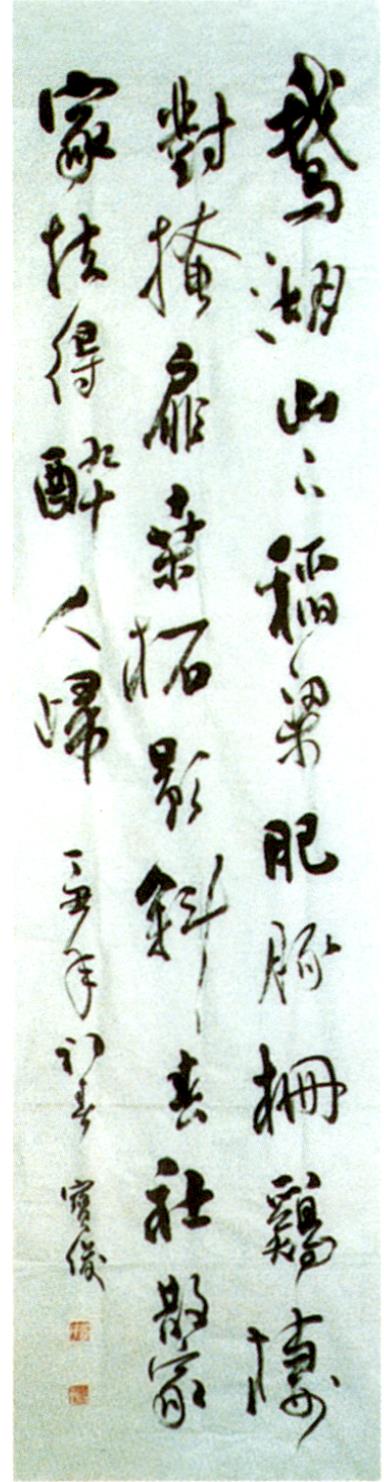 鵝湖山下稻粱肥豚柵鷄棲
對掩扉桑柘影斜春社散家
家扶得醉人歸 丁丑年初春 寶俊